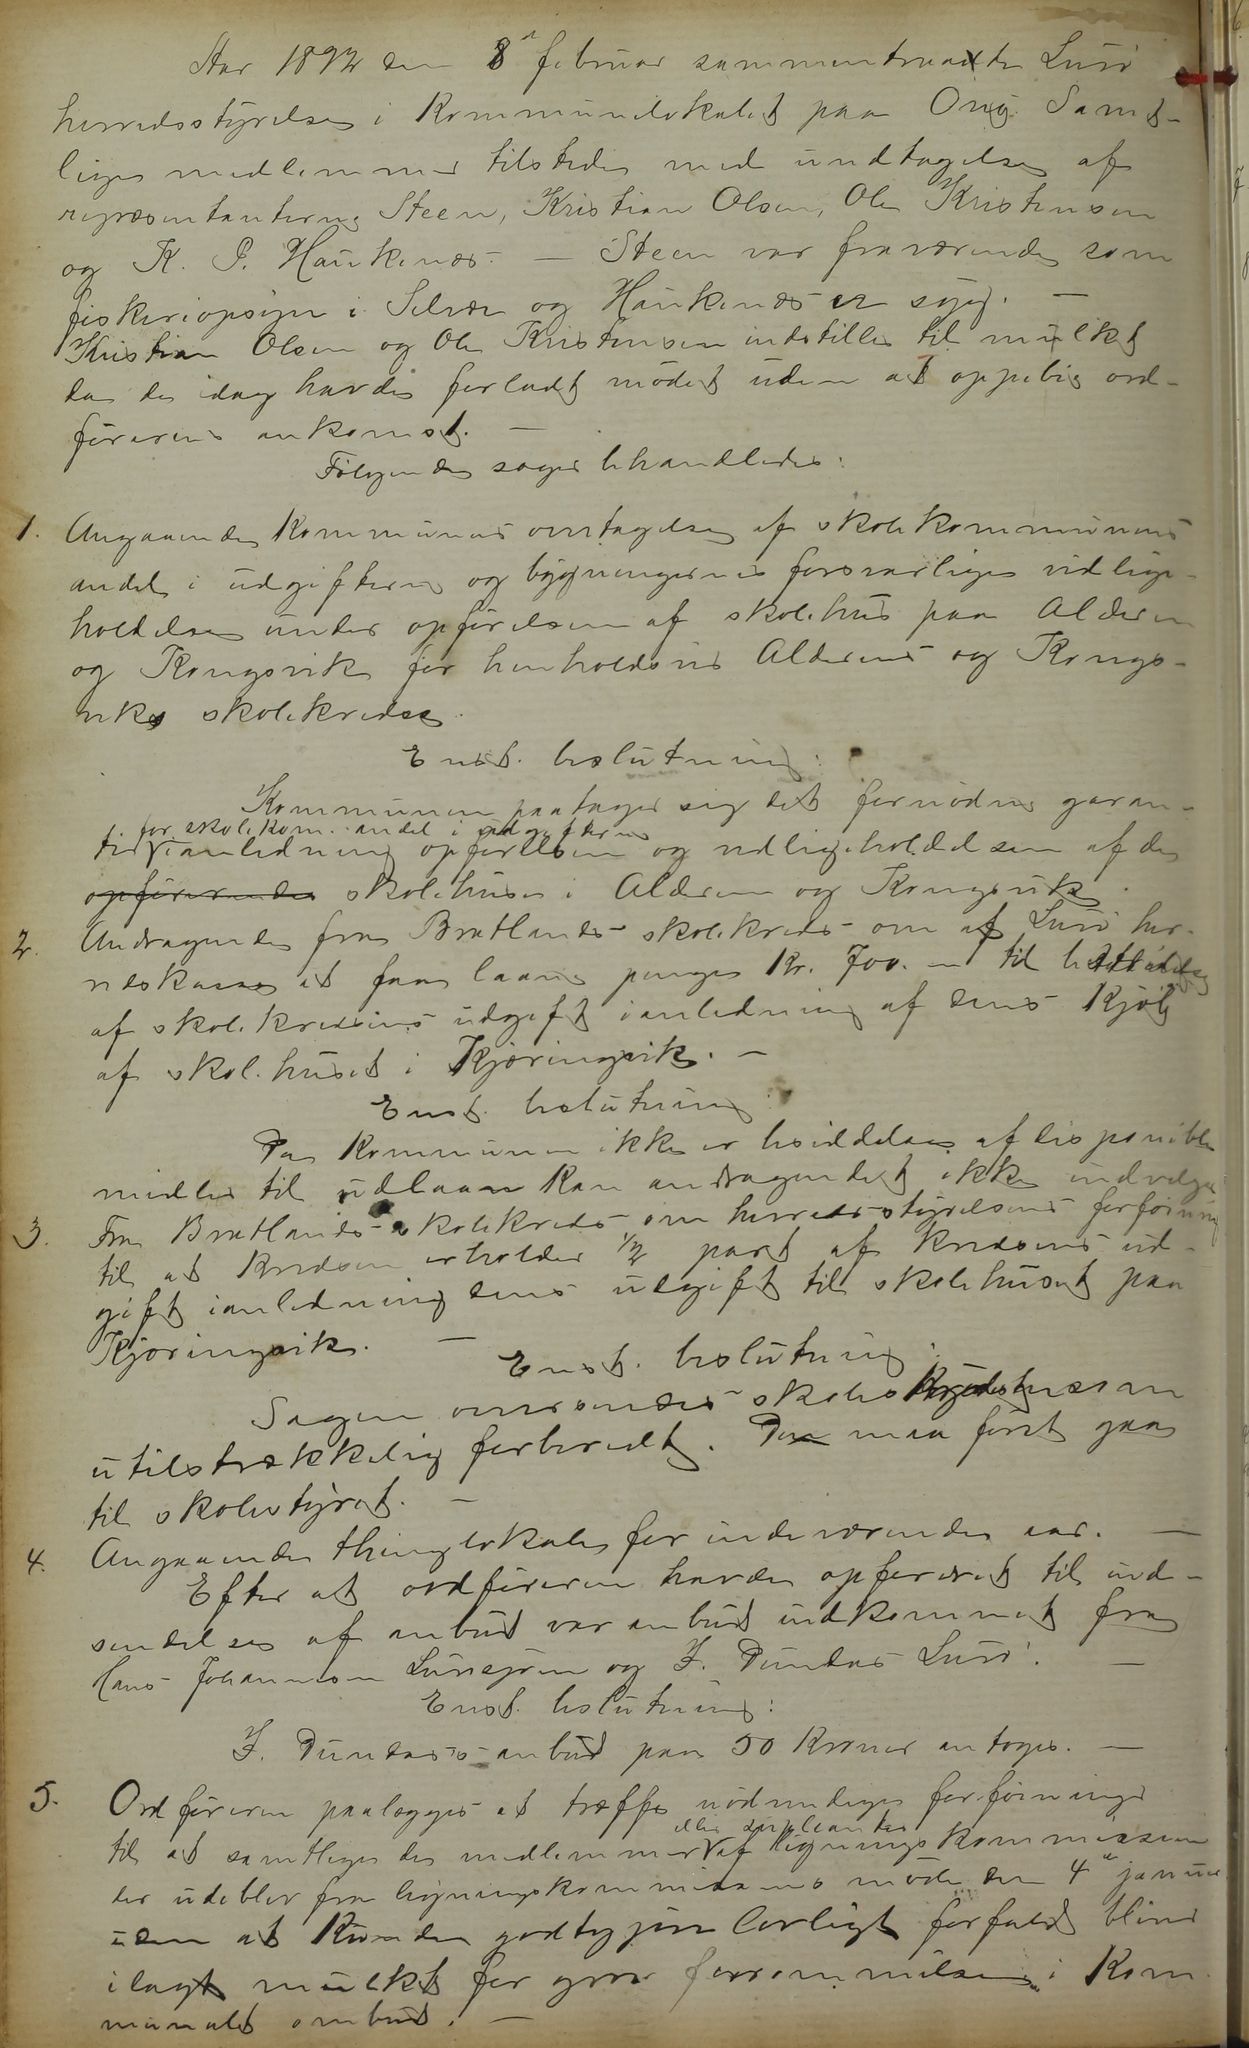 Aar 1892 den 8de februar sammentraadte Lurø
herredsstyrelse i Kommunelokalet paa Onø. Samt-
lige medlemmer tilstede med undtagelse af
repræsentanterne Steen, Kristian Olsen, Ole Kristensen
og K. P. Haukenæs. — Steen var fraværende som
fiskeriopsyn i Selvær og Haukenæs er syg. —
Kristian Olsen og Ole Kristensen indstilles til mulkt
da de idag havde forladt mødet uden at oppebie ord-
førerens ankomst. —
Følgende sager behandledes:
1. Angaaende Kommunens overtagelse af skolekommunens
andel i udgifterne og bygningernes forsvarlige vedlige-
holdelse under opførelsen af skolehus paa Alderen
og Kongsvik for henholdsvis Alderens og Kongs-
viks skolekredse.
Enst. beslutning:
Kommunen paatager sig det fornødne garan-
for skolekom. andel i udgifterne
ti ianledning opførelsen og vedligeholdelsen af de
opførerendes skolehuse i Alderen og Kongsvik.
2. Andragende fra Bratlands skolekreds om af Lurø her-
redskasse at faa laane penge Kr. 700.— til
af skolekredsens udgift ianledning af dens Kjøb
af skolehuset i Kjæringvik. —
Enst. beslutning:
Da Kommunen ikke er besiddelse af disponible
midler til udlaan kan andragendet ikke indvilges
3. Fra Bratlands skolekreds om herredsstyrelsens forføining
til at kredsen erholder 1/2 part af kredsens ud-
gift ianledning dens udgift til skolehuset paa
Kjæringvik. —
Enst. beslutning:
Sagen omsendes skoles som
utilstrækkelig forberedt. Den maa først gaa
til skolestyret. —
4. Angaaende thinglokale for indeværende aar. —
Efter at ordføreren havde opfordret til ind-
sendelse af anbud var anbud indkommet fra
Hans Johannesen og I. Dundas Lurø. —
Enst. beslutning:
I. Dundas's anbud paa 50 Kroner antoges. —
5. Ordføreren paalægges at træffe nødvendige forføininger
eller supleanter
til at samtlige de medlemmer af ligningskommissionen
der udeblev fra ligningskommissionens møde den 4de januar
uden at Kunde godtgjøre lovligt forfald bliver
ilagt mulkt for grov forsømmelse i Kom-
munalt ombud. —